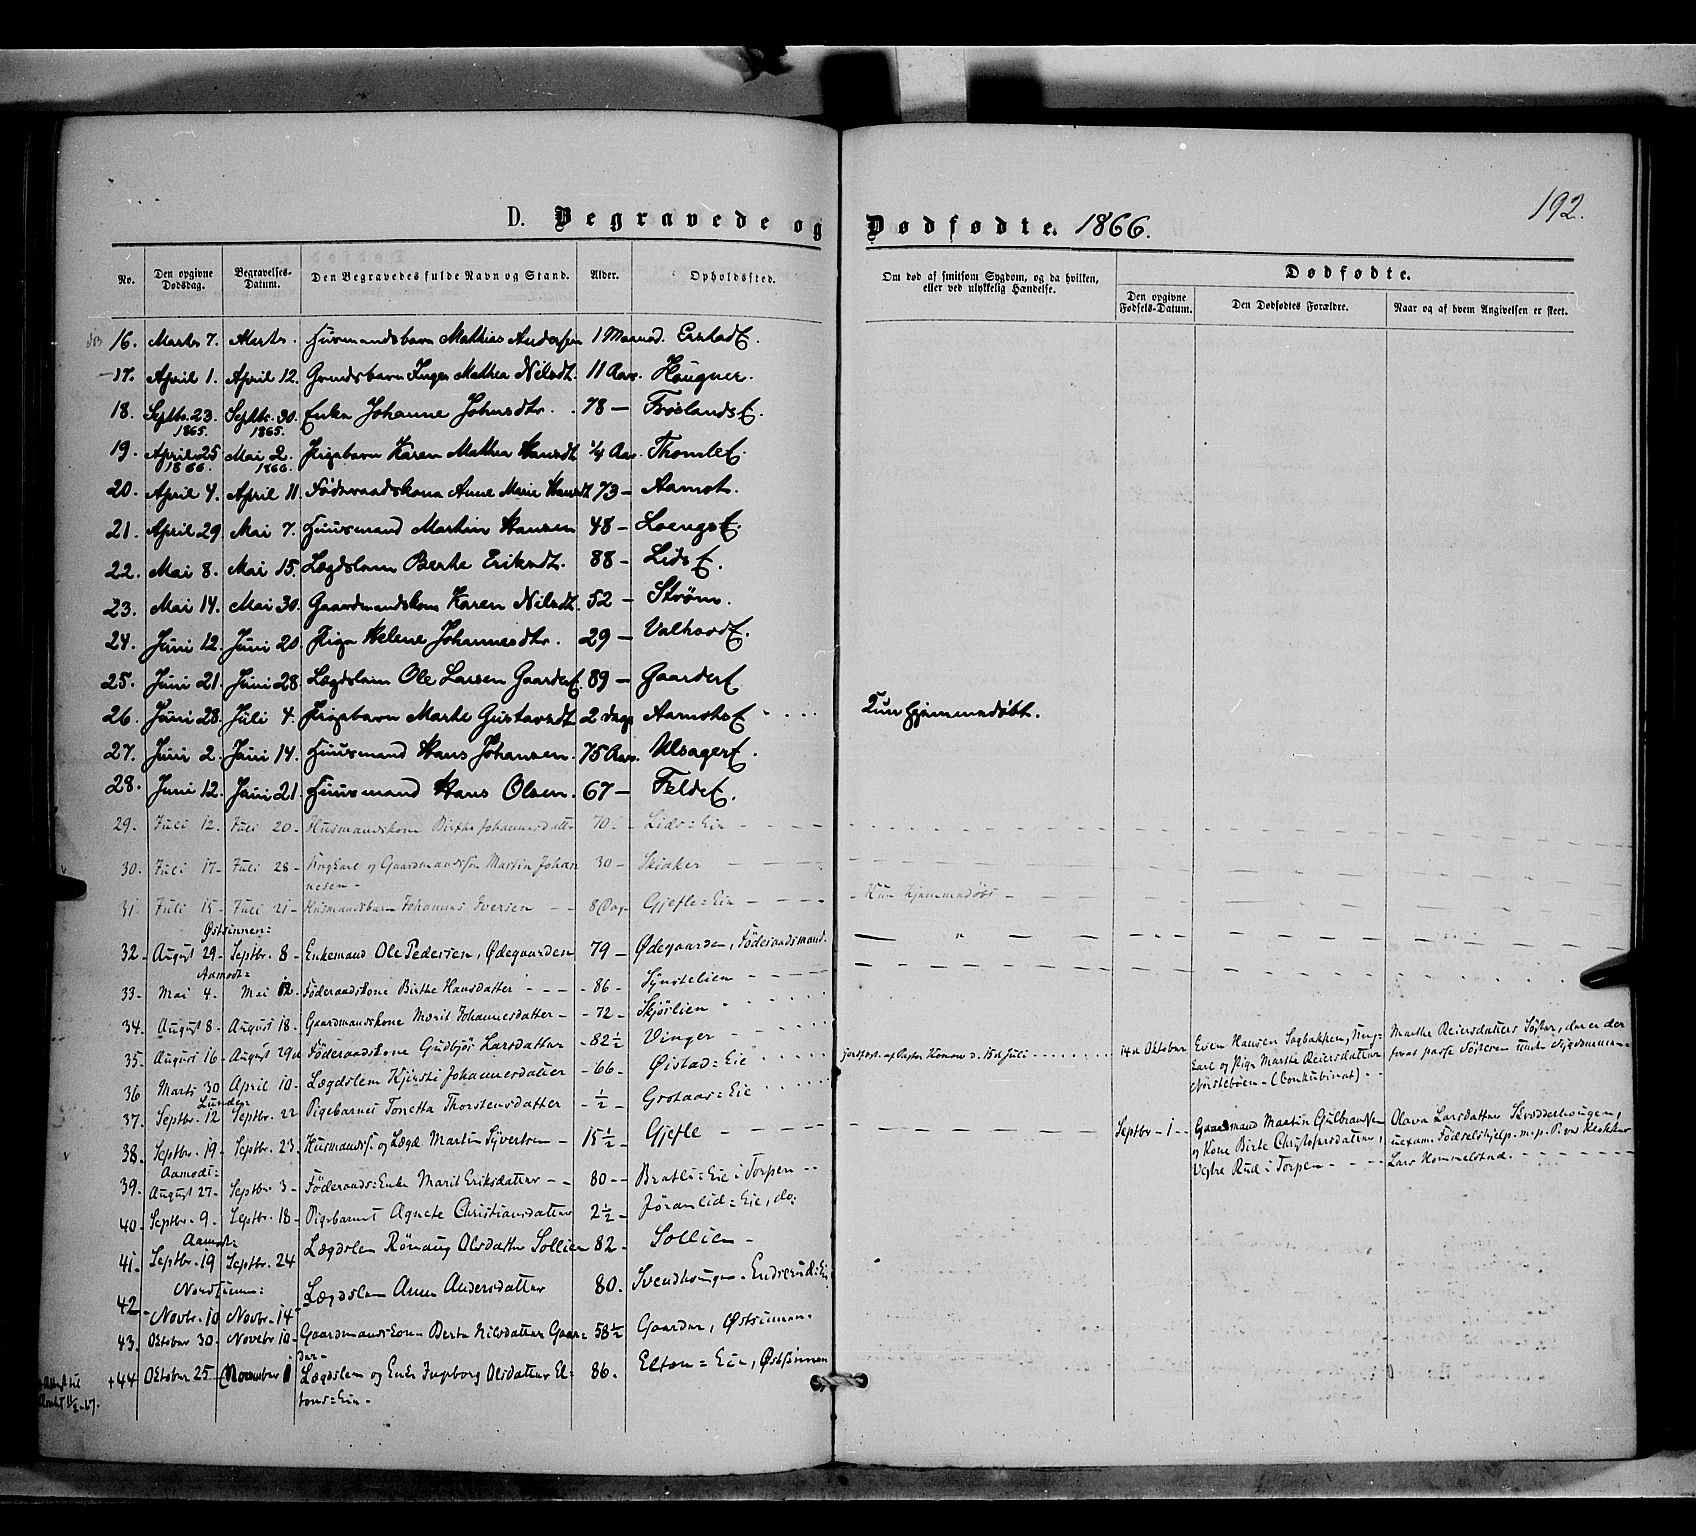 192.
D. Begravede og Dødfødte. 1866.
No. Den opgivne Dødsdag. Begravelses-Datum. Den Begravedes fulde Navn og Stand. Alder. Opholdssted. Om død af smitsom Sygdom, og da hvilken, eller ved ulykkelig Hændelse. Dødfødte.
Den opgivne Fødsels-Datum. Den Dødfødtes Forældre. Naar og af hvem Angivelsen er skeet.
16. Marts 7. Marts. Huusmandsbarn Mathias Andersen 1 Maaned.
17. April 1. April 12. Gaardsbarn Inger Mathea Nilsdt. 11 Aar. Haugner.
18. Septbr. 23. 1865. Septbr. 30. 1865. Enke Johanne Johnsdtr. 78 — Frøslands E.
19. April 25 1866. Mai 2. 1866. Pigebarn Karen Mathea Hansdt. ¼ Aar. Thomle E.
20. April 4. April 11. Føderaadskone Anne Marie Hansdt. 73 — Aamot.
21. April 29. Mai 7. Huusmand Martin Hansen 48 — Loengs E.
22. Mai 8. Mai 15. Lægdslem Berte Eriksdt. 88 — Lids E.
23. Mai 14. Mai 30. Gaardmandskone Karen Nilsdt. 52 — Strøm.
24. Juni 12. Juni 20. Pige Helene Johannesdtr. 29 — Valhovd E.
25. Juni 21. Juni 28. Lægdslem Ole Larsen Gaarder E. 89 — Gaarder E.
26. Juni 28. Juli 4. Pigebarn Marte Gustavsdt. 2 dage Aamots E. Kun hjemmedøbt.
27. Juni 2. Juni 14. Huusmand Hans Johansen. 75 Aar. Ulsager E.
28. Juni 12. Juni 21. Huusmand Hans Olsen. 67 — Felde E.
29. Juli 12. Juli 20. Husmandskone Birthe Johannesdatter 70. Lids-Eie
30. Juli 17. Juli 28. Ungkarl og Gaardmandssøn Martin Johannesen 30 — Skiaker
31. Juli 15. Juli 21. Husmandsbarn Johannes Iversen 8 Dag. Gjefle-Eie Kun hjemmedøbt
Østsinnen:
32. August 29. Septbr. 8. Enkemand Ole Pedersen, Ødegaarden 79 — Ødegaarden, Føderaadsmand.
Aamodt:
33. Mai 4. Mai 12. Føderaadskone Birthe Hansdatter 86. Synstelien
34. August 8. August 18. Gaardmandskone Marit Johannesdatter 72. Skjølien
35. August 16. August 29 Føderaadskone Gudbjør Larsdatter 82½ Vinger
36 Marts 30 April 10. Lægdslem Kjersti Johannesdatter 66. Øistad-Eie
Lunden:
37. Septbr. 12 Septbr. 22 Pigebarnet Tonetta Thorstensdatter ½ Grotaas-Eie
38. Septbr. 19. Septbr. 23. Husmandss. og Lægd. Martin Syvertsen 15½ Gjefle
Aamodt:
39. August 27. Septbr. 3. Føderaads-Enke Marit Eriksdatter 80 Bratli-Eie i Torpen
40. Septbr. 9. Septbr. 18. Pigebarnet Agnete Christiansdatter 2½ Jøranlid-Eie, do:
Aamodt:
41. Septbr. 19 Septbr. 24 Lægdslem Rønnaug Olsdatter Sollien 82. Sollien
Nordsinnen:
42 Novbr. 10 Novbr. 14 Lægdslem Anne Andersdatter 80. Svendhougen Endrerud-Eie
43. Oktober 30. Novebr 10. Gaardmandskone Berte Nilsdatter Gaarder 58½ Gaarder, Østsinnen.
+44 Oktober 25 November 1 Lægdslem og Enke Ingeborg Olsdatter Eltons-Eie 86. Elton-Eie, Østsinnen
14de Oktober Even Hansen Sagbakken, Ungkarl og Pige Marthe Reiersdatter Nørstebøen (Conkubinat)
Marthe Reiersdatters Søster, der er der forat passe Søsteren under Sygdommen
Septbr 1 Gaardmand Martin Gulbrandsen og Kone Birte Christophersdatter, Vestre Rud i Torpen
Olava Larsdatter Skrædderhougen, uexam. Fødselshjelp. m. p. P. ved Klokker Lars Hommelstad.